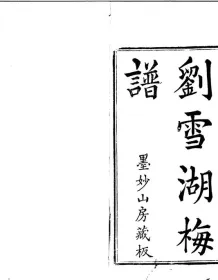 劉雪湖梅
譜
墨妙山房藏板